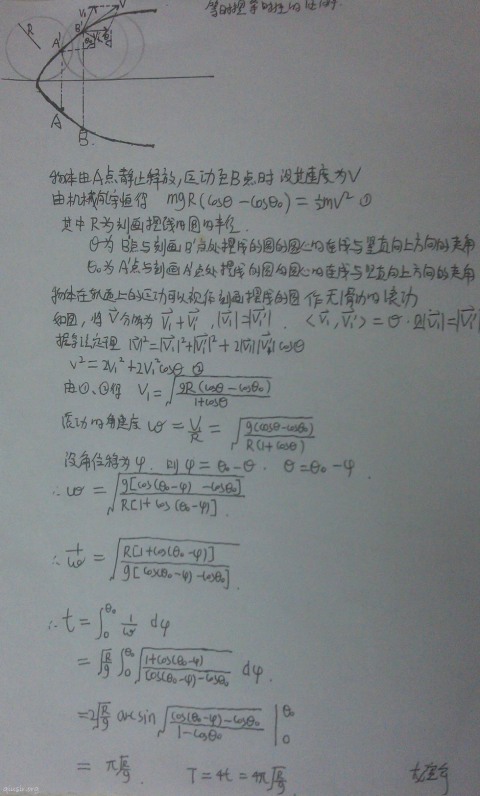 等时摆等时性的证明
R
V₁
V
B'
A'
A
B
物体由A点静止释放,运动至B点时 设其速度为V
由机械能守恒得 mgR(cosθ-cosθ₀)=½mv² ①
其中R为刻画摆线的圆的半径.
θ为B'点与刻画B'点处摆线的圆的圆心的连线与竖直向上方向的夹角
θ₀为A'点与刻画A'点处摆线的圆的圆心的连线与竖直向上方向的夹角
物体在轨道上的运动可以视作刻画摆线的圆作无滑动的滚动
如图,将V⃗分解为V⃗₁+V⃗₁', |V⃗₁|=|V⃗₁'|. <V⃗₁,V⃗₁'>=θ. 且|V⃗₁|=|V⃗₁'|
据余弦定理 |V⃗|²=|V⃗₁|²+|V⃗₁'|²+2|V⃗₁||V⃗₁'|cosθ
V²=2V₁²+2V₁²cosθ ②
由①、②得 V₁=√(gR(cosθ-cosθ₀)/(1+cosθ))
滚动的角速度 ω=V/R=√(g(cosθ-cosθ₀)/(R(1+cosθ)))
设角位移为φ. 则φ=θ₀-θ. θ=θ₀-φ.
∴ω=√(g[cos(θ₀-φ)-cosθ₀]/(R[1+cos(θ₀-φ)]).
∴1/ω=√(R[1+cos(θ₀-φ)]/(g[cos(θ₀-φ)-cosθ₀])).
∴t=∫₀^θ₀ 1/ω dφ
=√(R/g) ∫₀^θ₀ √((1+cos(θ₀-φ))/(cos(θ₀-φ)-cosθ₀)) dφ.
=2√(R/g) arcsin √((cos(θ₀-φ)-cosθ₀)/(1-cosθ₀)) |₀^θ₀
=π√(R/g). T=4t=4π√(R/g)